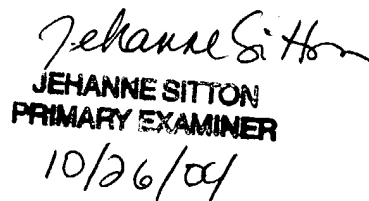 Jehanne Sitton
JEHANNE SITTON
PRIMARY EXAMINER
10/26/04